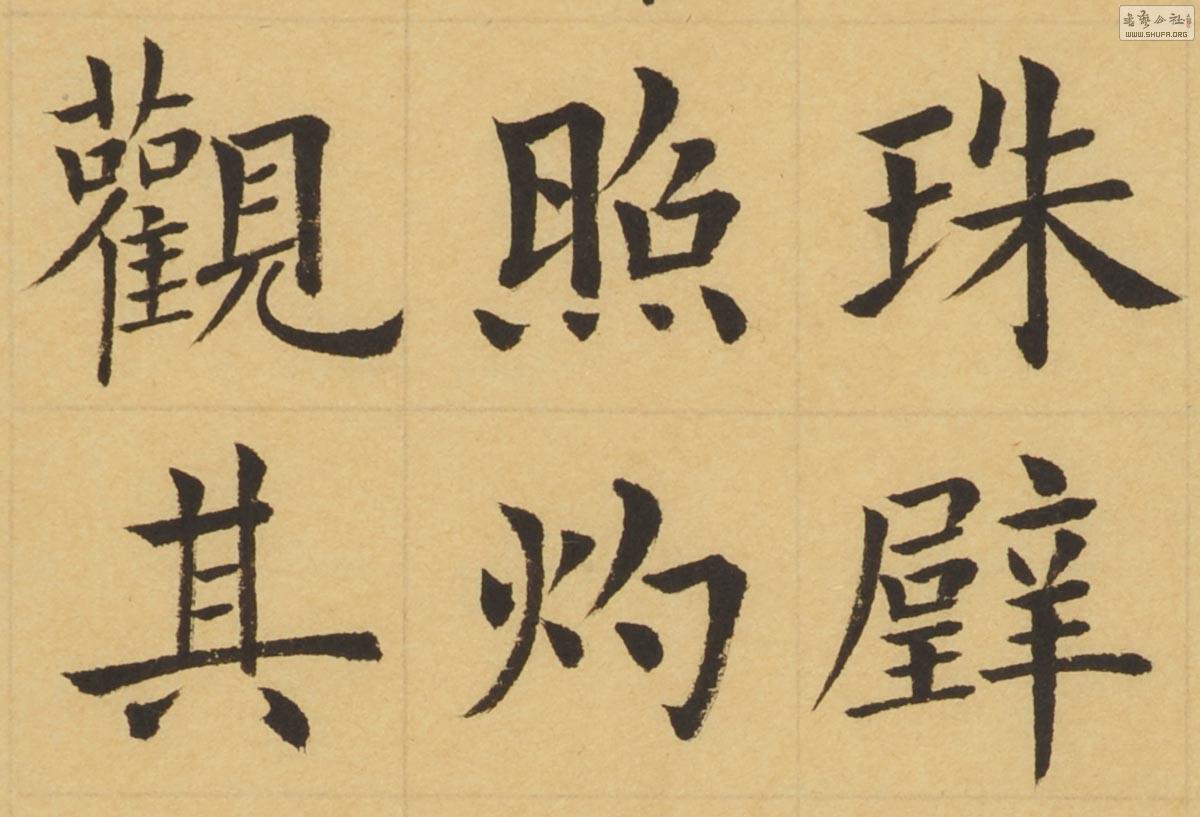 珠璧
照灼
觀其
書藝公社
WWW.SHUFA.ORG